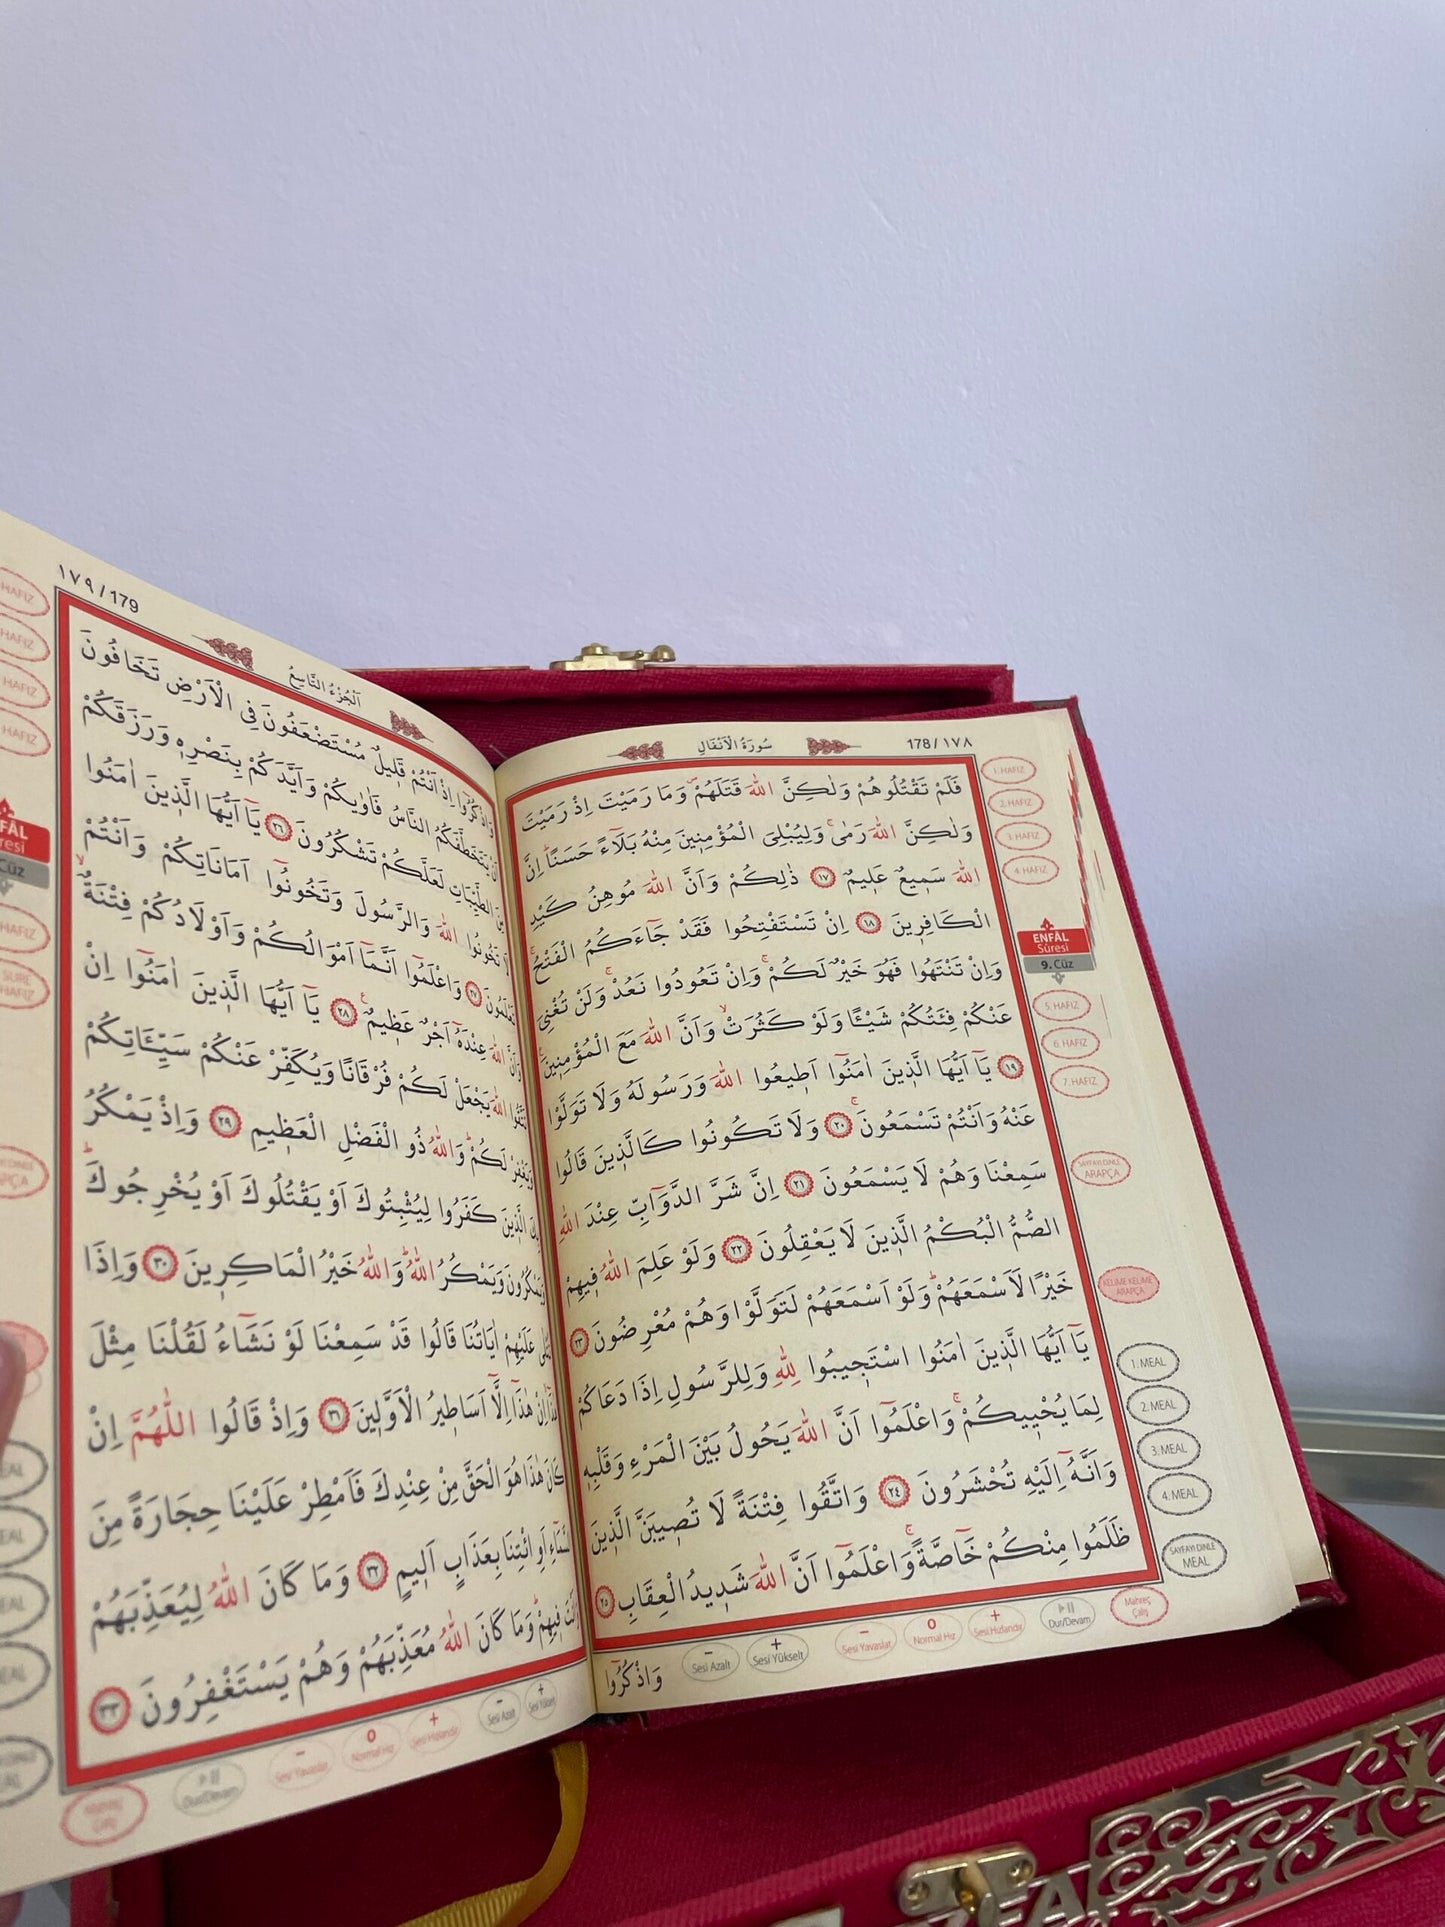 178/١٧٨
سُورَةُ الْاَنْفَالِ
فَلَمْ تَقْتُلُوهُمْ وَلٰكِنَّ اللّٰهَ قَتَلَهُمْ وَمَا رَمَيْتَ اِذْ رَمَيْتَ
وَلٰكِنَّ اللّٰهَ رَمٰىۚ وَلِيُبْلِىَ الْمُؤْمِن۪ينَ مِنْهُ بَلَٓاءً حَسَنًاۜ اِنَّ
اللّٰهَ سَم۪يعٌ عَل۪يمٌ ﴿١٧﴾ ذٰلِكُمْ وَاَنَّ اللّٰهَ مُوهِنُ كَيْدِ
الْكَافِر۪ينَ ﴿١٨﴾ اِنْ تَسْتَفْتِحُوا فَقَدْ جَٓاءَكُمُ الْفَتْحُۚ
وَاِنْ تَنْتَهُوا فَهُوَ خَيْرٌ لَكُمْۚ وَاِنْ تَعُودُوا نَعُدْۚ وَلَنْ تُغْنِىَ
عَنْكُمْ فِئَتُكُمْ شَيْـًٔا وَلَوْ كَثُرَتْۙ وَاَنَّ اللّٰهَ مَعَ الْمُؤْمِن۪ينَ۟
﴿١٩﴾ يَٓا اَيُّهَا الَّذ۪ينَ اٰمَنُٓوا اَط۪يعُوا اللّٰهَ وَرَسُولَهُ وَلَا تَوَلَّوْا
عَنْهُ وَاَنْتُمْ تَسْمَعُونَۚ ﴿٢٠﴾ وَلَا تَكُونُوا كَالَّذ۪ينَ قَالُوا
سَمِعْنَا وَهُمْ لَا يَسْمَعُونَ ﴿٢١﴾ اِنَّ شَرَّ الدَّوَٓابِّ عِنْدَ اللّٰهِ
الصُّمُّ الْبُكْمُ الَّذ۪ينَ لَا يَعْقِلُونَ ﴿٢٢﴾ وَلَوْ عَلِمَ اللّٰهُ ف۪يهِمْ
خَيْرًا لَاَسْمَعَهُمْۜ وَلَوْ اَسْمَعَهُمْ لَتَوَلَّوْا وَهُمْ مُعْرِضُونَ ﴿٢٣﴾
يَٓا اَيُّهَا الَّذ۪ينَ اٰمَنُوا اسْتَج۪يبُوا لِلّٰهِ وَلِلرَّسُولِ اِذَا دَعَاكُمْ
لِمَا يُحْي۪يكُمْۚ وَاعْلَمُٓوا اَنَّ اللّٰهَ يَحُولُ بَيْنَ الْمَرْءِ وَقَلْبِه۪
وَاَنَّهُٓ اِلَيْهِ تُحْشَرُونَ ﴿٢٤﴾ وَاتَّقُوا فِتْنَةً لَا تُص۪يبَنَّ الَّذ۪ينَ
ظَلَمُوا مِنْكُمْ خَٓاصَّةًۚ وَاعْلَمُٓوا اَنَّ اللّٰهَ شَد۪يدُ الْعِقَابِ ﴿٢٥﴾
وَاذْكُرُٓوا
1. HAFIZ
2. HAFIZ
3. HAFIZ
4. HAFIZ
ENFÂL
Sûresi
9. Cüz
5. HAFIZ
6. HAFIZ
7. HAFIZ
SAYFAYI DİNLE
ARAPÇA
KELİME KELİME
ARAPÇA
1. MEAL
2. MEAL
3. MEAL
4. MEAL
SAYFAYI DİNLE
MEAL
− Sesi Azalt
+ Sesi Yükselt
− Sesi Yavaşlat
0 Normal Hız
+ Sesi Hızlandır
Dur/Devam
Mahreç
Çalış
١٧٩/179
اَلْجُزْءُ التَّاسِعُ
وَاذْكُرُٓوا اِذْ اَنْتُمْ قَل۪يلٌ مُسْتَضْعَفُونَ فِى الْاَرْضِ تَخَافُونَ
اَنْ يَتَخَطَّفَكُمُ النَّاسُ فَاٰوٰيكُمْ وَاَيَّدَكُمْ بِنَصْرِه۪ وَرَزَقَكُمْ
مِنَ الطَّيِّبَاتِ لَعَلَّكُمْ تَشْكُرُونَ ﴿٢٦﴾ يَٓا اَيُّهَا الَّذ۪ينَ اٰمَنُوا
لَا تَخُونُوا اللّٰهَ وَالرَّسُولَ وَتَخُونُٓوا اَمَانَاتِكُمْ وَاَنْتُمْ
تَعْلَمُونَ ﴿٢٧﴾ وَاعْلَمُٓوا اَنَّمَٓا اَمْوَالُكُمْ وَاَوْلَادُكُمْ فِتْنَةٌۙ
وَاَنَّ اللّٰهَ عِنْدَهُٓ اَجْرٌ عَظ۪يمٌ۟ ﴿٢٨﴾ يَٓا اَيُّهَا الَّذ۪ينَ اٰمَنُٓوا اِنْ
تَتَّقُوا اللّٰهَ يَجْعَلْ لَكُمْ فُرْقَانًا وَيُكَفِّرْ عَنْكُمْ سَيِّـَٔاتِكُمْ
وَيَغْفِرْ لَكُمْۜ وَاللّٰهُ ذُو الْفَضْلِ الْعَظ۪يمِ ﴿٢٩﴾ وَاِذْ يَمْكُرُ
بِكَ الَّذ۪ينَ كَفَرُوا لِيُثْبِتُوكَ اَوْ يَقْتُلُوكَ اَوْ يُخْرِجُوكَۜ
وَيَمْكُرُونَ وَيَمْكُرُ اللّٰهُۜ وَاللّٰهُ خَيْرُ الْمَاكِر۪ينَ ﴿٣٠﴾ وَاِذَا
تُتْلٰى عَلَيْهِمْ اٰيَاتُنَا قَالُوا قَدْ سَمِعْنَا لَوْ نَشَٓاءُ لَقُلْنَا مِثْلَ
هٰذَٓاۙ اِنْ هٰذَٓا اِلَّٓا اَسَاط۪يرُ الْاَوَّل۪ينَ ﴿٣١﴾ وَاِذْ قَالُوا اللّٰهُمَّ اِنْ
كَانَ هٰذَا هُوَ الْحَقَّ مِنْ عِنْدِكَ فَاَمْطِرْ عَلَيْنَا حِجَارَةً مِنَ
السَّمَٓاءِ اَوِ ائْتِنَا بِعَذَابٍ اَل۪يمٍ ﴿٣٢﴾ وَمَا كَانَ اللّٰهُ لِيُعَذِّبَهُمْ
وَاَنْتَ ف۪يهِمْۜ وَمَا كَانَ اللّٰهُ مُعَذِّبَهُمْ وَهُمْ يَسْتَغْفِرُونَ ﴿٣٣﴾
HAFIZ
HAFIZ
HAFIZ
HAFIZ
HAFIZ
SURE
HAFIZ
− Sesi Azalt
+ Sesi Yükselt
− Sesi Yavaşlat
0 Normal Hız
+ Sesi Hızlandır
Dur/Devam